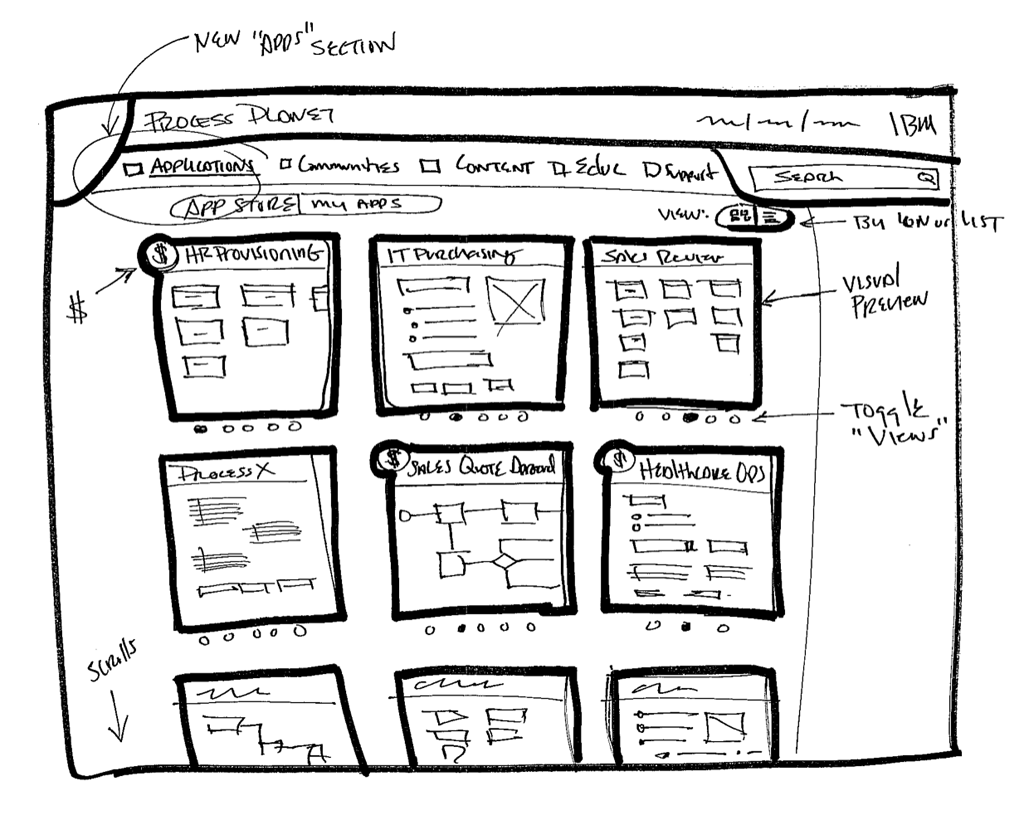 NEW "APPS"
SECTION
PROCESS PLANET
IBM
APPLICATIONS
Communities
CONTENT
EDUC
Support
Search
APP STORE
MY APPS
VIEW:
BY ICON OR LIST
$
HR PROVISIONING
IT PURCHASING
SALES REVIEW
$
VISUAL
PREVIEW
TOGGLE
"VIEWS"
PROCESS X
$
SALES QUOTE DEMAND
$
HEALTHCARE OPS
SCROLLS